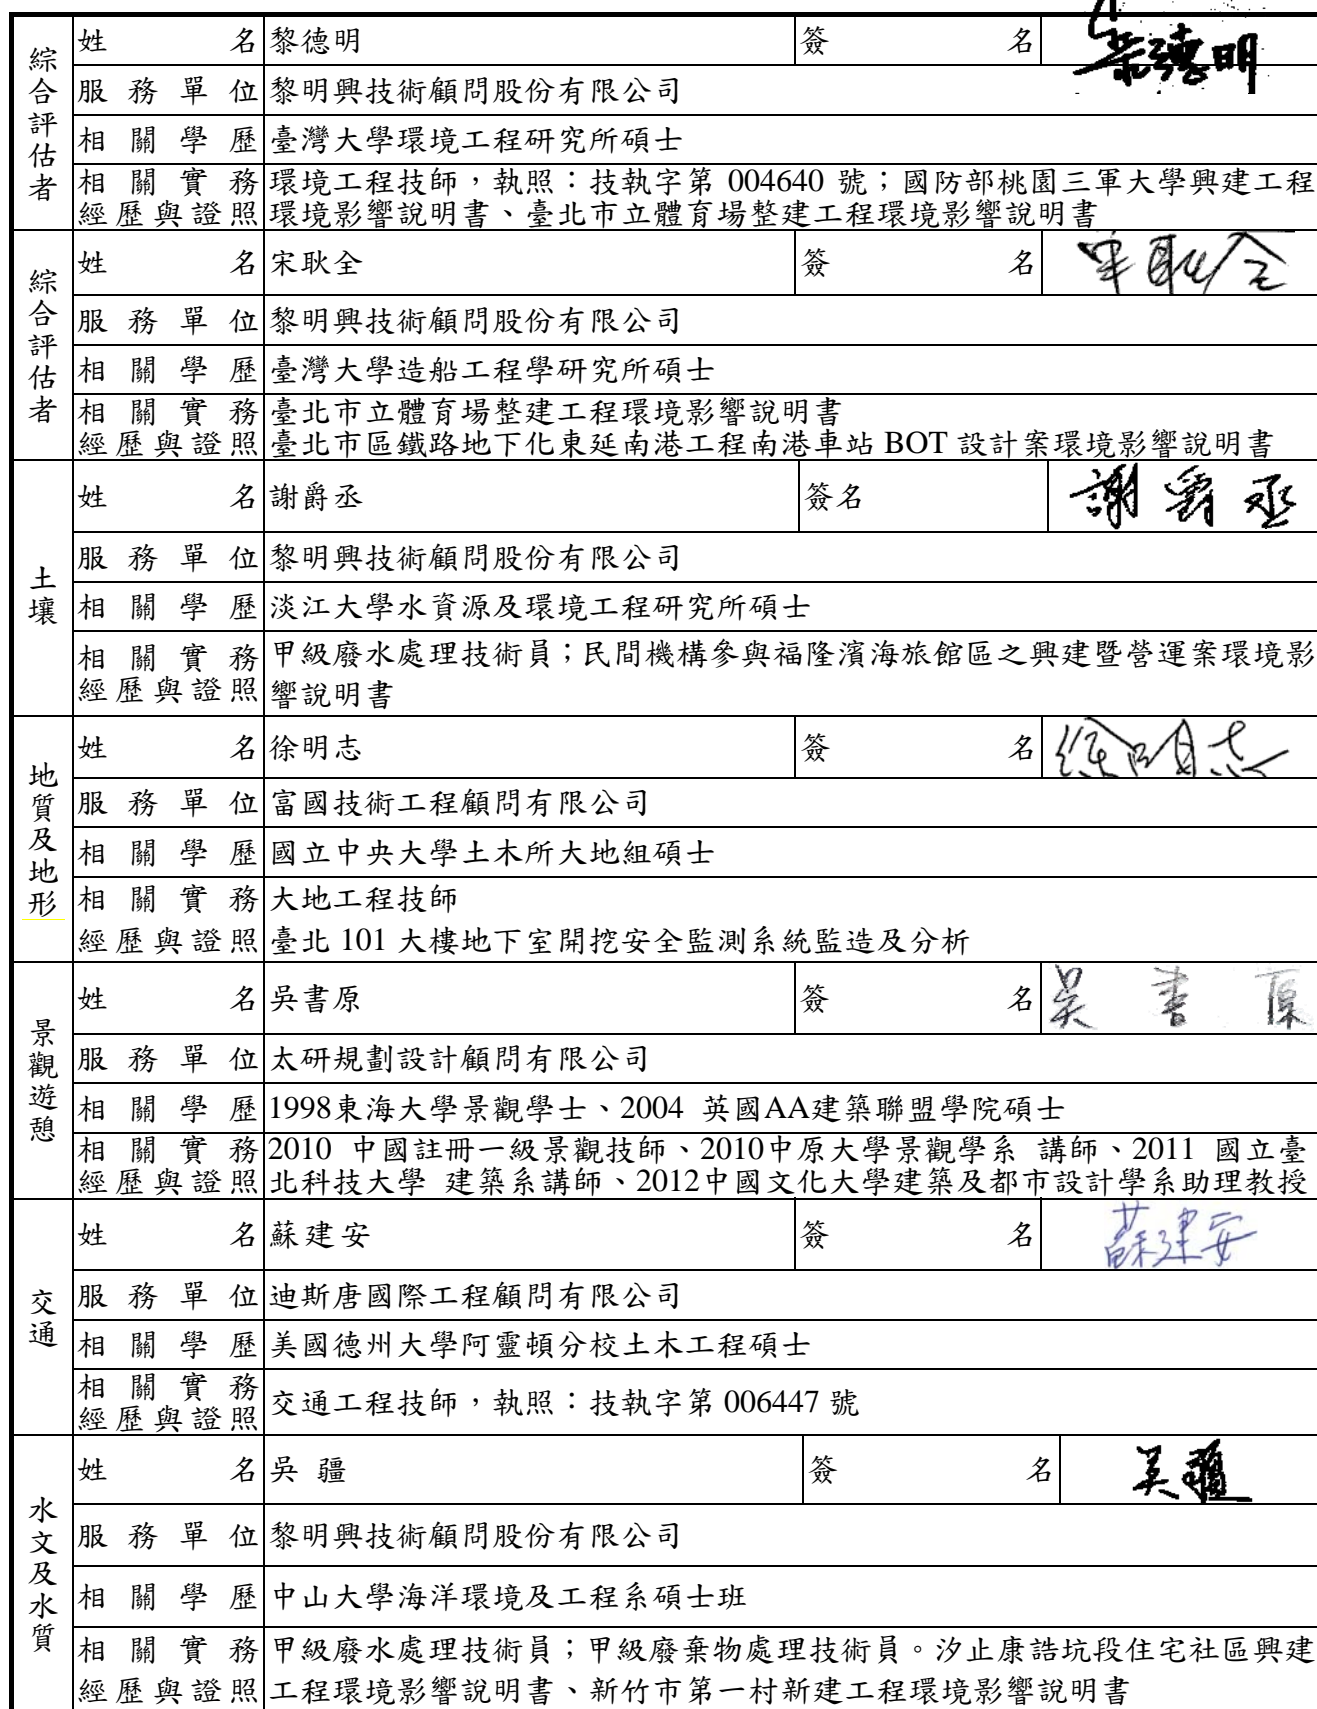 綜合評估者
姓名 黎德明 簽名 黎德明
服務單位 黎明興技術顧問股份有限公司
相關學歷 臺灣大學環境工程研究所碩士
相關實務 環境工程技師，執照：技執字第 004640 號；國防部桃園三軍大學興建工程
經歷與證照 環境影響說明書、臺北市立體育場整建工程環境影響說明書
綜合評估者
姓名 宋耿全 簽名 宋耿全
服務單位 黎明興技術顧問股份有限公司
相關學歷 臺灣大學造船工程學研究所碩士
相關實務 臺北市立體育場整建工程環境影響說明書
經歷與證照 臺北市區鐵路地下化東延南港工程南港車站 BOT 設計案環境影響說明書
土壤
姓名 謝爵丞 簽名 謝爵丞
服務單位 黎明興技術顧問股份有限公司
相關學歷 淡江大學水資源及環境工程研究所碩士
相關實務 甲級廢水處理技術員；民間機構參與福隆濱海旅館區之興建暨營運案環境影
經歷與證照 響說明書
地質及地形
姓名 徐明志 簽名 徐明志
服務單位 富國技術工程顧問有限公司
相關學歷 國立中央大學土木所大地組碩士
相關實務 大地工程技師
經歷與證照 臺北 101 大樓地下室開挖安全監測系統監造及分析
景觀遊憩
姓名 吳書原 簽名 吳書原
服務單位 太研規劃設計顧問有限公司
相關學歷 1998東海大學景觀學士、2004 英國AA建築聯盟學院碩士
相關實務 2010 中國註冊一級景觀技師、2010中原大學景觀學系 講師、2011 國立臺
經歷與證照 北科技大學 建築系講師、2012中國文化大學建築及都市設計學系助理教授
交通
姓名 蘇建安 簽名 蘇建安
服務單位 迪斯唐國際工程顧問有限公司
相關學歷 美國德州大學阿靈頓分校土木工程碩士
相關實務
經歷與證照 交通工程技師，執照：技執字第 006447 號
水文及水質
姓名 吳 疆 簽名 吳疆
服務單位 黎明興技術顧問股份有限公司
相關學歷 中山大學海洋環境及工程系碩士班
相關實務 甲級廢水處理技術員；甲級廢棄物處理技術員。汐止康誥坑段住宅社區興建
經歷與證照 工程環境影響說明書、新竹市第一村新建工程環境影響說明書